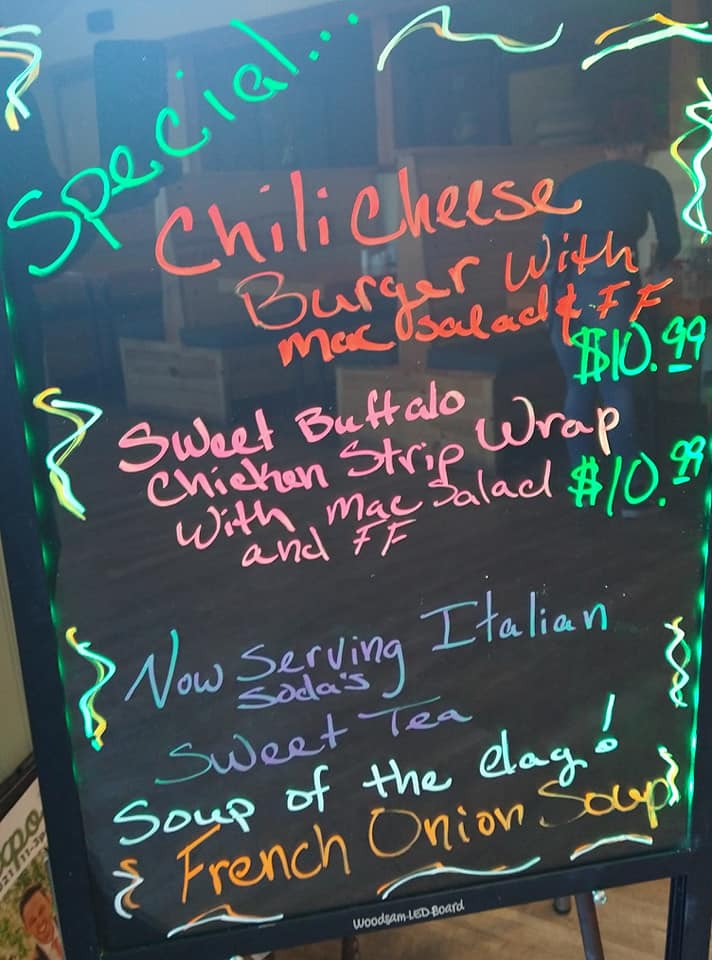 Special...
Chili Cheese
Burger With
Mac Salad & FF
$10.99
Sweet Buffalo
Chicken Strip Wrap
With Mac Salad $10.99
and FF
Now Serving Italian
Soda's
Sweet Tea
Soup of the day!
French Onion Soup
Woodsam-LED-Board